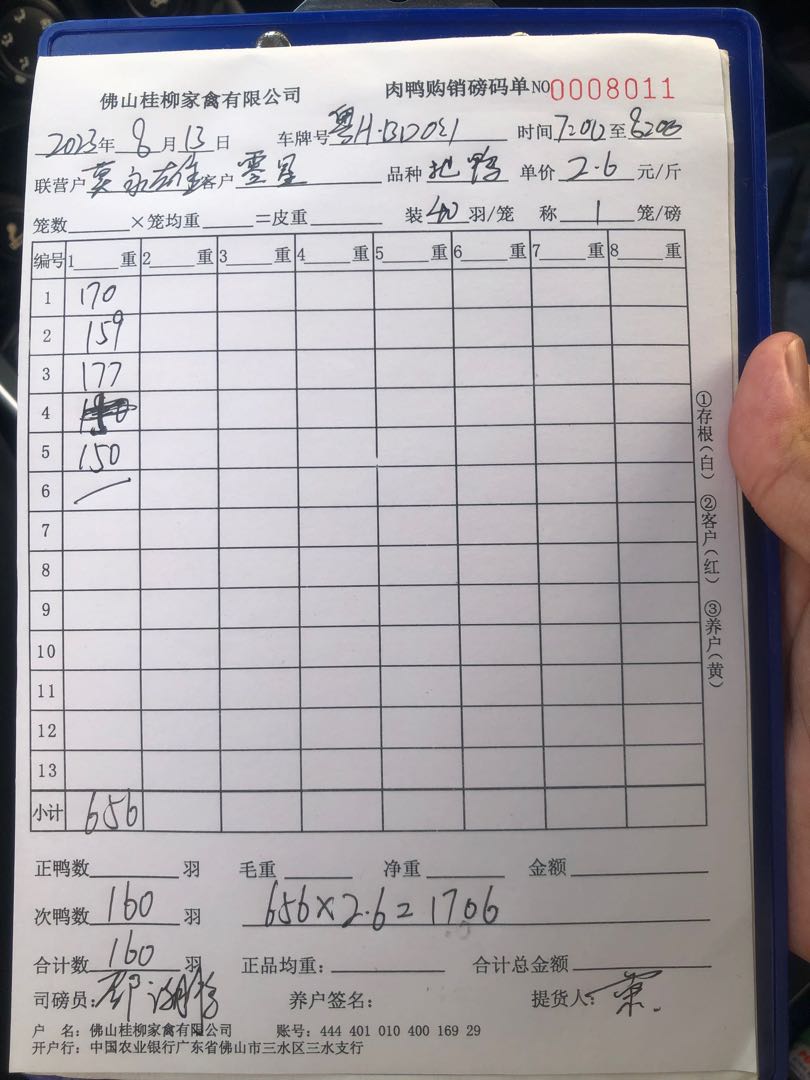 佛山桂柳家禽有限公司 肉鸭购销磅码单 NO0008011
2023年 8月13日 车牌号 粤H·BD021 时间 至
联营户 莫 客户 零星 品种 鸭 单价 2.6 元/斤
笼数 ×笼均重 =皮重 装 40 羽/笼 称 1 笼/磅
编号 1 重 2 重 3 重 4 重 5 重 6 重 7 重 8 重
1 170
2 159
3 177
4
5 150
6
7
8
9
10
11
12
13
小计 656
正鸭数 羽 毛重 净重 金额
次鸭数 160 羽 656×2.6=1706
合计数 160 羽 正品均重: 合计总金额
司磅员: 养户签名: 提货人:
户 名:佛山桂柳家禽有限公司 账号:444 401 010 400 169 29
开户行:中国农业银行广东省佛山市三水区三水支行
①存根(白) ②客户(红) ③养户(黄)